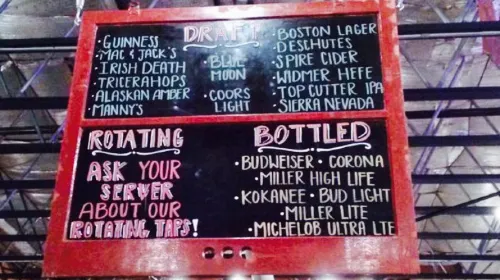 DRAFT
• GUINNESS
• MAC & JACK'S
• IRISH DEATH
• TRICERAHOPS
• ALASKAN AMBER
• MANNY'S
• BLUE
MOON
• COORS
LIGHT
• BOSTON LAGER
• DESCHUTES
• SPIRE CIDER
• WIDMER HEFE
• TOP CUTTER IPA
• SIERRA NEVADA
ROTATING
ASK YOUR
SERVER
ABOUT OUR
ROTATING TAPS!
BOTTLED
• BUDWEISER • CORONA
• MILLER HIGH LIFE
• KOKANEE • BUD LIGHT
• MILLER LITE
• MICHELOB ULTRA LTE